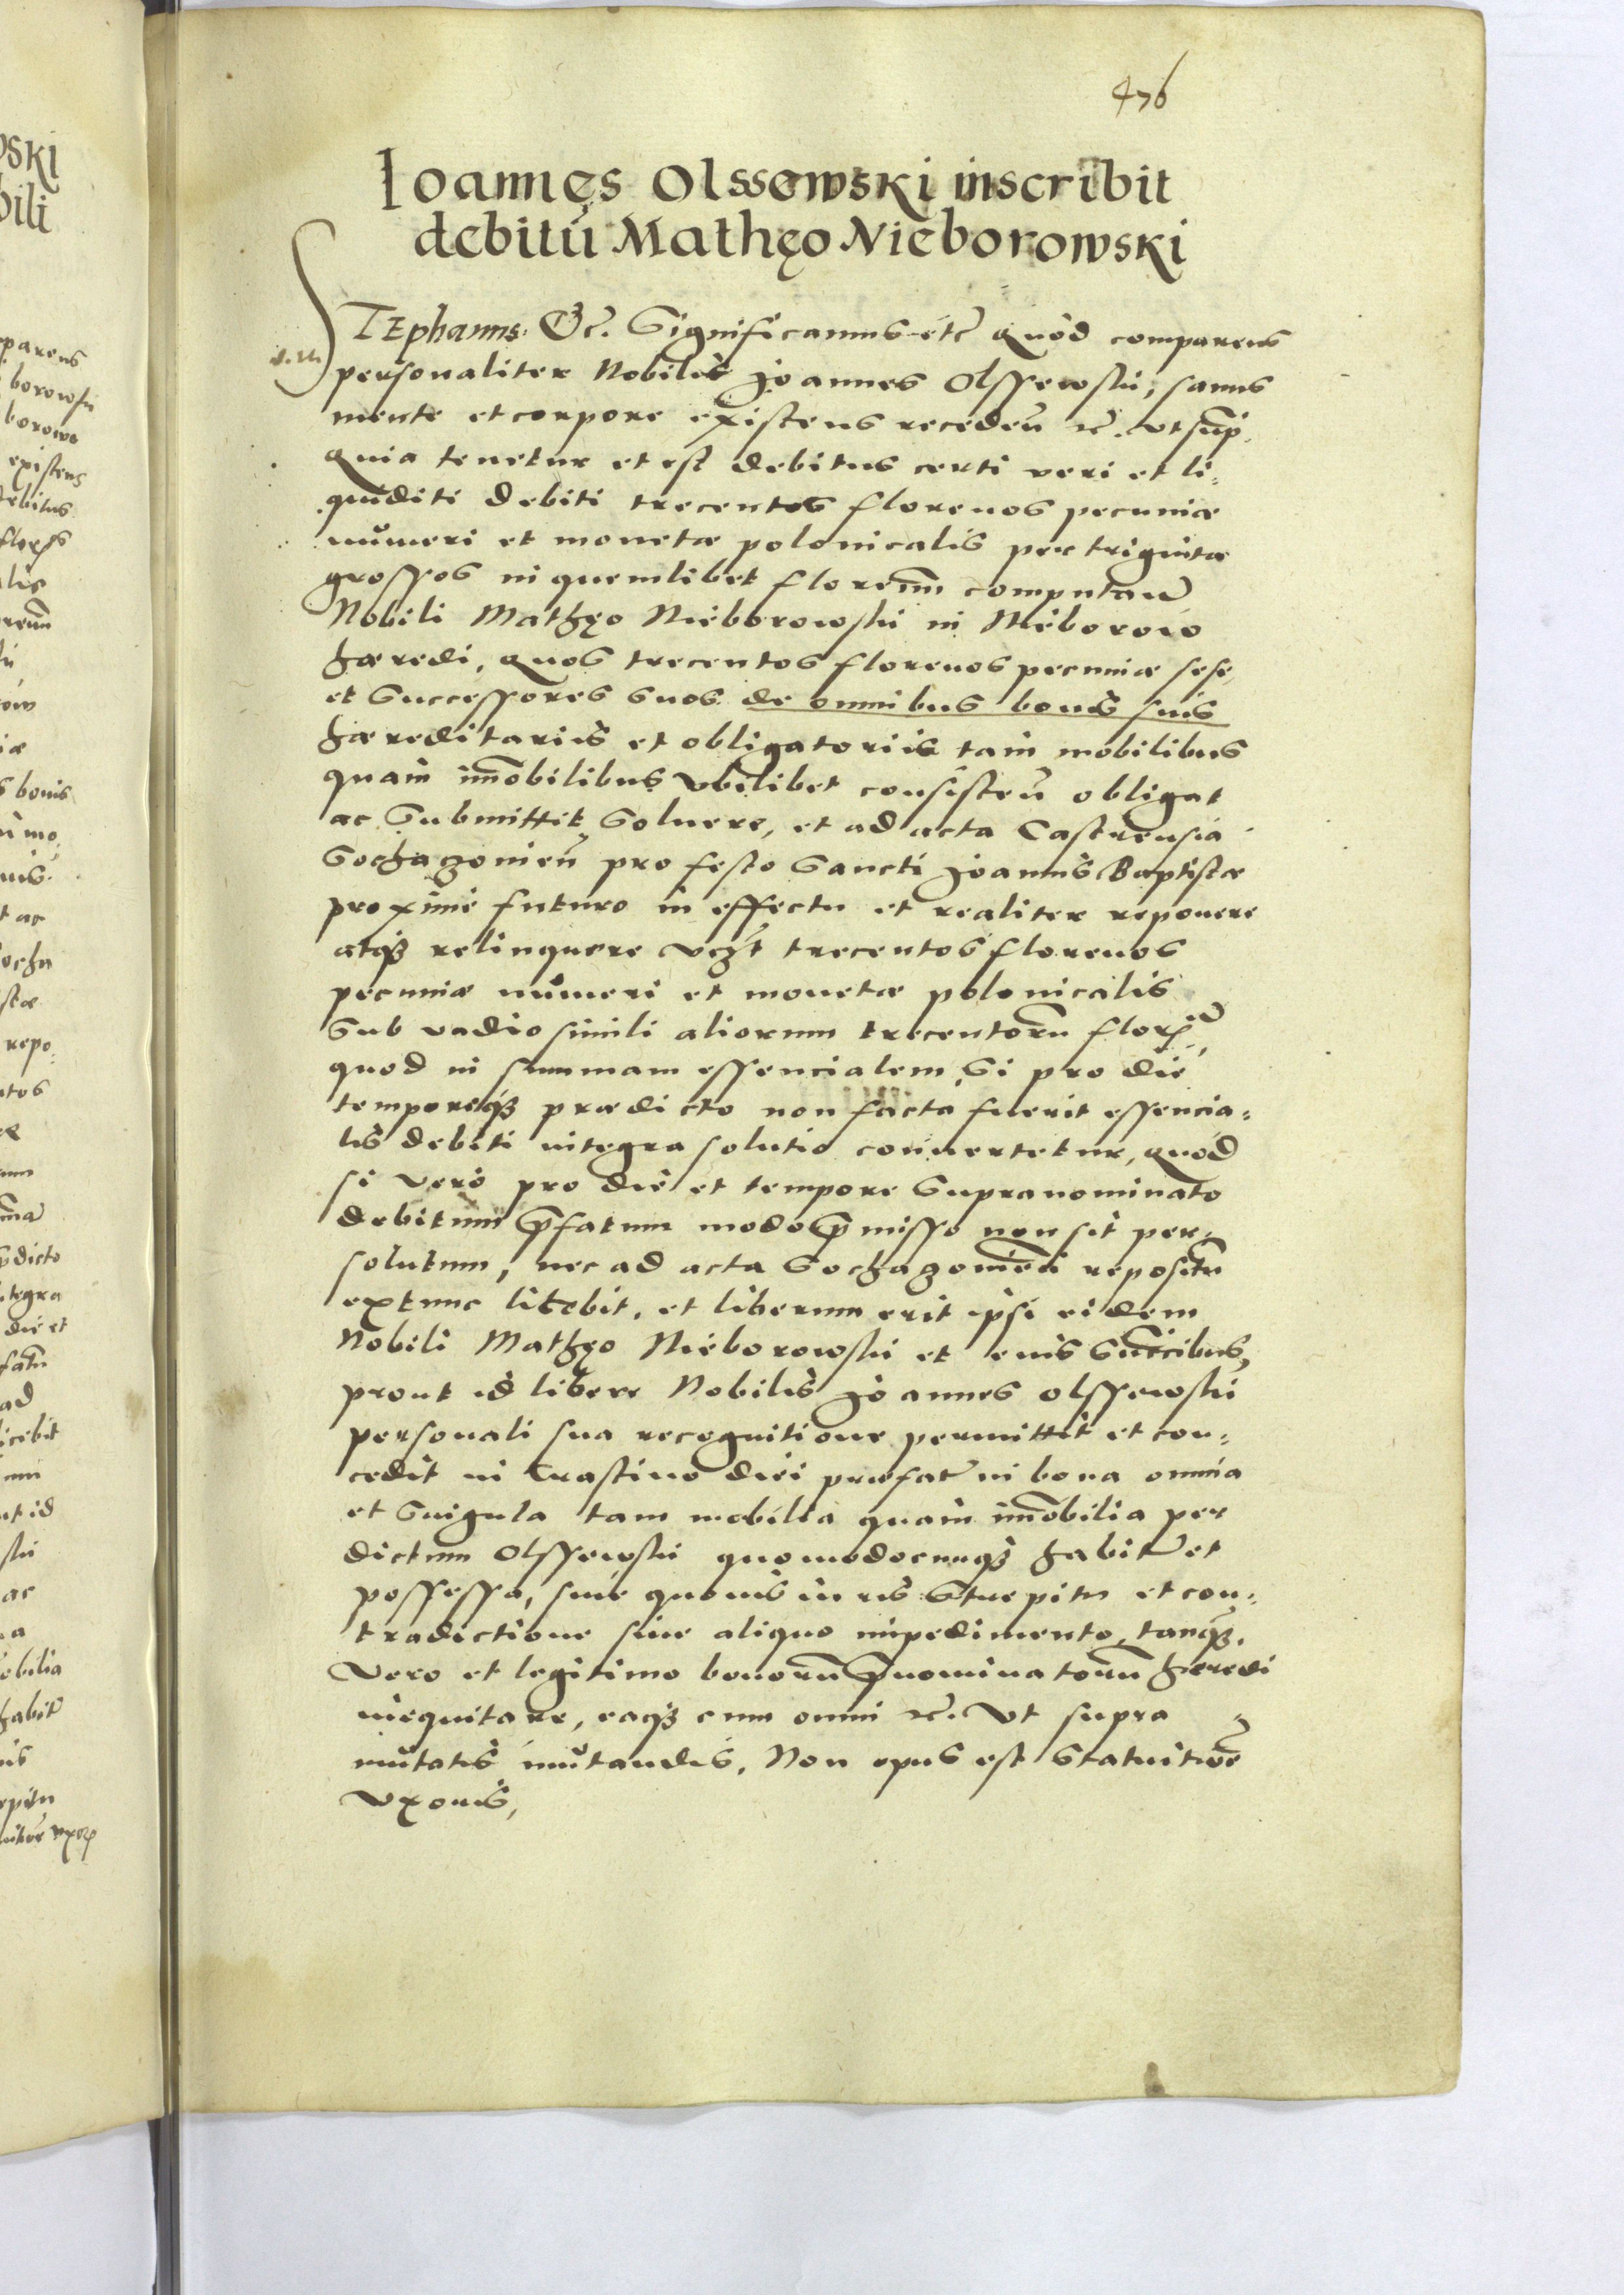 476
Ioannęs Olssewski inscribit
debitū Mathęo Nieborowski
STEphanus Etc. Significamus etc quod comparens
personaliter Nobilis Joannes Olssewski, sanus
mente et corpore existens receden̄ etc. vt sup̄
quia tenetur et est debitus certi veri et li-
quiditi debiti trecentos florenos pecuniæ
numeri et monetæ polonicalis per triginta
grossos in quemlibet florenum computan̄
Nobili Mathęo Nieborowski in Nieborow
hæredi, quos trecentos florenos pecuniæ sese
et Successores suos de omnibus bonis suis
hæreditariis et obligatoriis tam mobilibus
quam im̄obilibus vbilibet consisten̄ obligat
ac Submittit Soluere, et ad acta Castrensia
Sochaczouien̄ pro festo Sancti Joannis Baptistæ
proxime futuro in effectu et realiter reponere
atqȝ relinquere vczt trecentos florenos
pecuniæ numeri et monetæ polonicalis
Sub vadio simili aliorum trecentorū flor.
quod in summam essencialem, Si pro die
temporeqȝ prædicto non facta fuerit essencia-
lis debiti integra solutio conuertetur, quod
si vero pro die et tempore Supranominato
debitum p̄fatum modo p̄misso non sit per-
solutum, nec ad acta Sochaczouien̄ repositū
extunc licebit, et liberum erit ipsi eidem
Nobili Mathęo Nieborowski et euis Succ̄ibus,
prout id libere Nobilis Joannes Olssewski
personali sua recognitione permittit et con-
cedit in Crastino diei præfat̄ in bona omnia
et Singula tam mobilia quam im̄obilia per
dictum Olssewski quomodocunqȝ habit̄ et
possessa, sine quouis iuris Strepitu et con-
tradictione siue aliquo impedimento, tanqȝ
vero et legitimo bonorū p̄nominatorū hæredi
inequitare, eaqȝ cum omni etc. Vt supra
mutatis mutandis. Non opus est Statuitioe
vxoris,